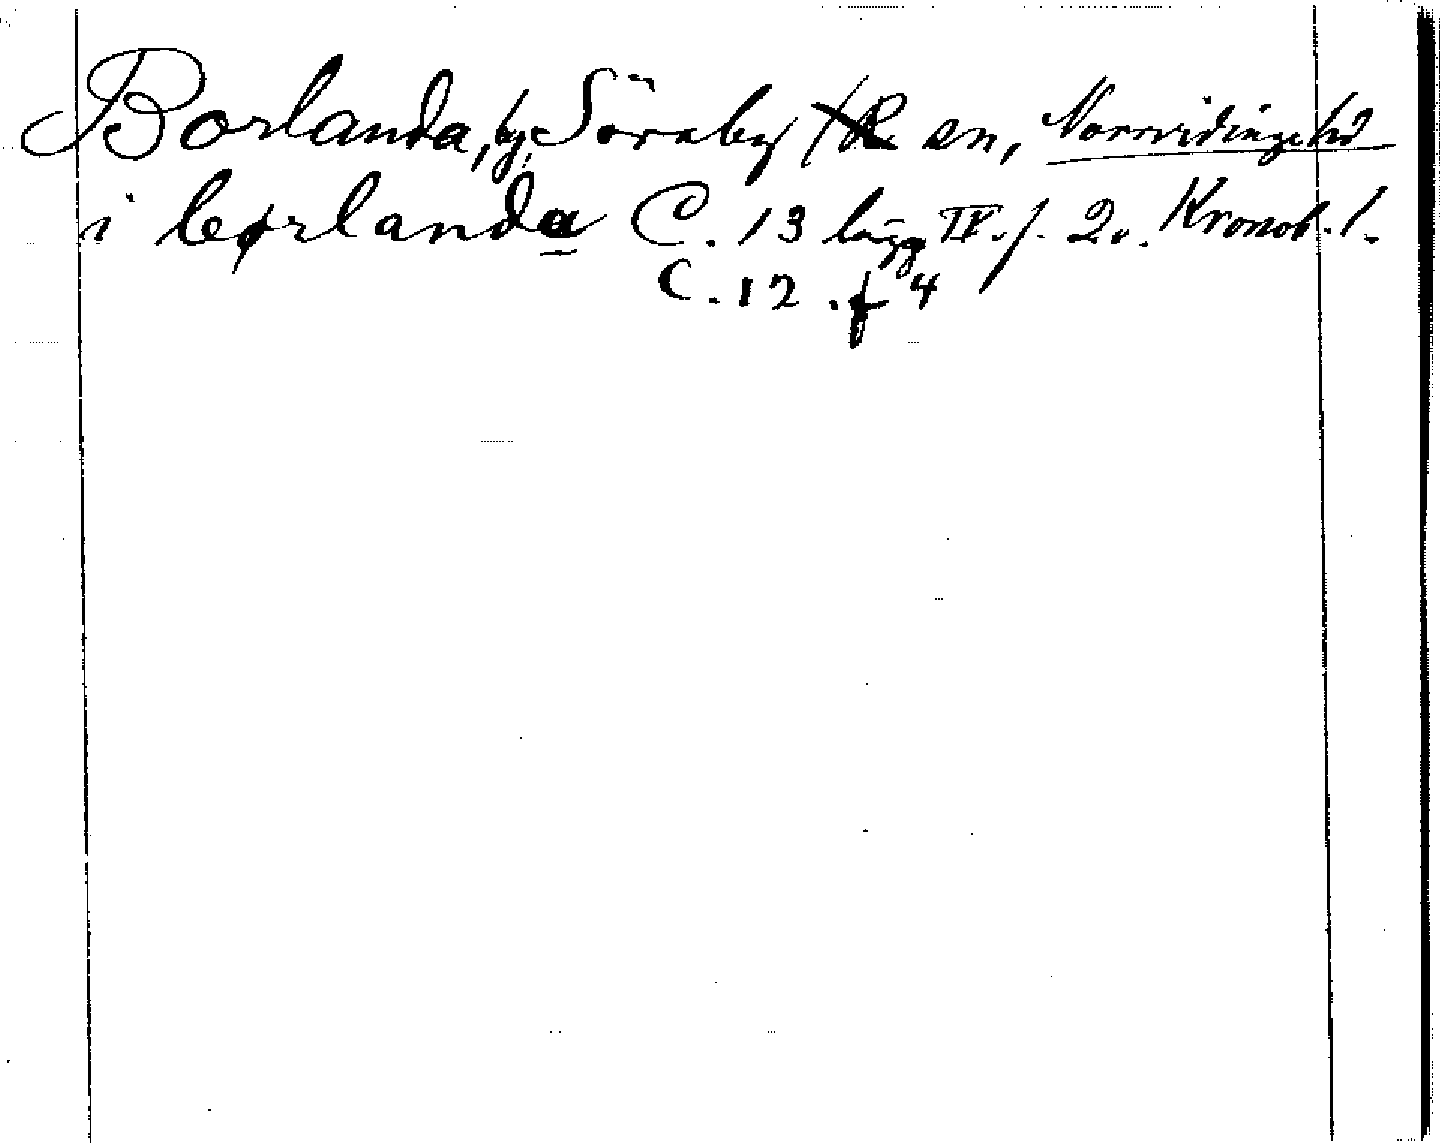 Borlanda, by, Söraby sn, Norrvidinge hd
i børlanda C. 13 lägg IV. f. 2v. Kronob. l.
C. 12 . f 4